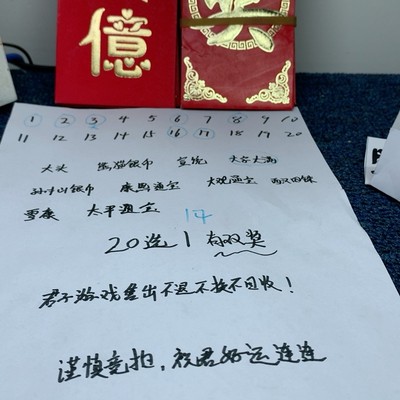 億
1 2 3 4 5 6 7 8 9 10
11 12 13 14 15 16 17 18 19 20
大头 熊猫银币 宣统
孙小头银币 康熙通宝 大观通宝
太平通宝 14
20选1 有双奖
君子游戏售出不退不换不回收!
谨慎竞拍,祝君好运连连